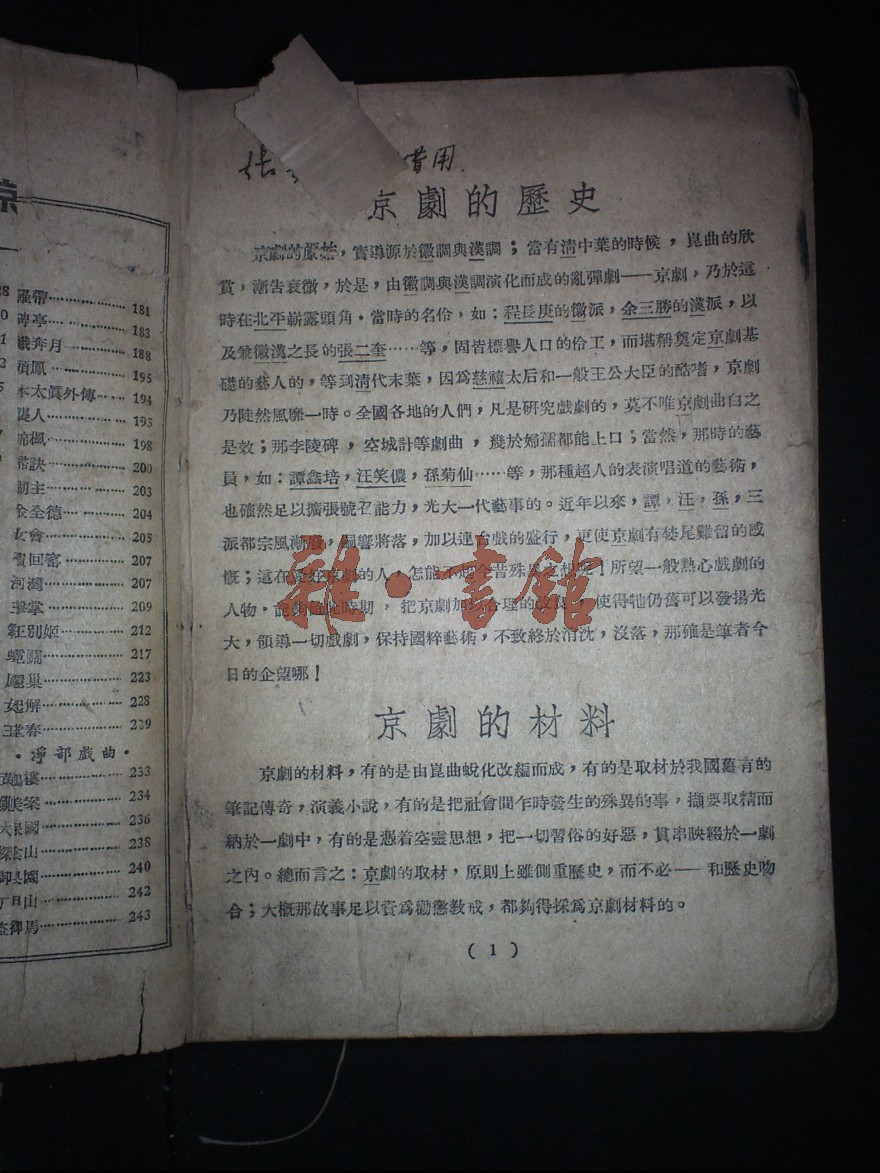 28 羅帶 181
碑亭 183
奔月 188
鳳 195
太眞外傳 194
人 195
楓 198
訣 200
主 203
金全德 204
女會 205
回窰 207
河灣 207
擊掌 209
別姬 212
關 217
巢 223
起解 228
春 229
·淨部戲曲·
樓 233
美案 234
國 236
山 238
園 240
山 242
盜御馬 243
借用
京劇的歷史
京劇的原始，實導源於徽調與漢調；當有清中葉的時候，崑曲的欣
賞，漸告衰微，於是，由徽調與漢調演化而成的亂彈劇——京劇，乃於這
時在北平嶄露頭角·當時的名伶，如：程長庚的徽派，余三勝的漢派，以
及兼徽漢之長的張二奎……等，固皆標譽人口的伶工，而堪稱奠定京劇基
礎的藝人的，等到清代末葉，因爲慈禧太后和一般王公大臣的酷嗜，京劇
乃陡然風靡一時。全國各地的人們，凡是研究戲劇的，莫不唯京劇曲白之
是效；那李陵碑，空城計等劇曲，幾於婦孺都能上口；當然，那時的藝
員，如：譚鑫培，汪笑儂，孫菊仙……等，那種超人的表演唱道的藝術，
也確然足以擴張號召能力，光大一代藝事的。近年以來，譚，汪，孫，三
派都宗風漸廢，嗣響將落，加以連台戲的盛行，更使京劇有徒尾難留的感
慨；這在愛好京劇的人，怎能不起今昔殊異之想呢！所望一般熱心戲劇的
人物，能夠値此時期，把京劇加以合理的改良，使得牠仍舊可以發揚光
大，領導一切戲劇，保持國粹藝術，不致終於消沈，沒落，那確是筆者今
日的企望哪！
京劇的材料
京劇的材料，有的是由崑曲蛻化改編而成，有的是取材於我國舊言的
筆記傳奇，演義小說，有的是把社會間乍時發生的殊異的事，擷要取精而
納於一劇中，有的是憑着空靈思想，把一切習俗的好惡，貫串映綴於一劇
之內。總而言之：京劇的取材，原則上雖側重歷史，而不必——和歷史吻
合；大概那故事足以資爲勸懲敎戒，都夠得採爲京劇材料的。
( 1 )
雅·書館